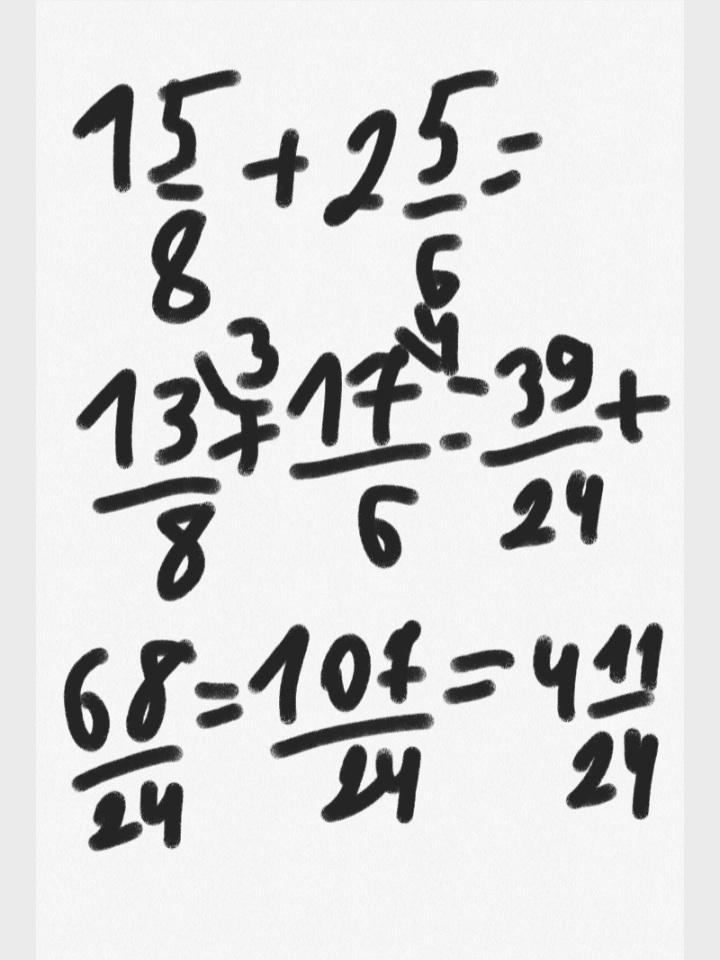 1 5/8 + 2 5/6 =
13/8 \3 + 17/6 \4 = 39/24 +
68/24 = 107/24 = 4 11/24